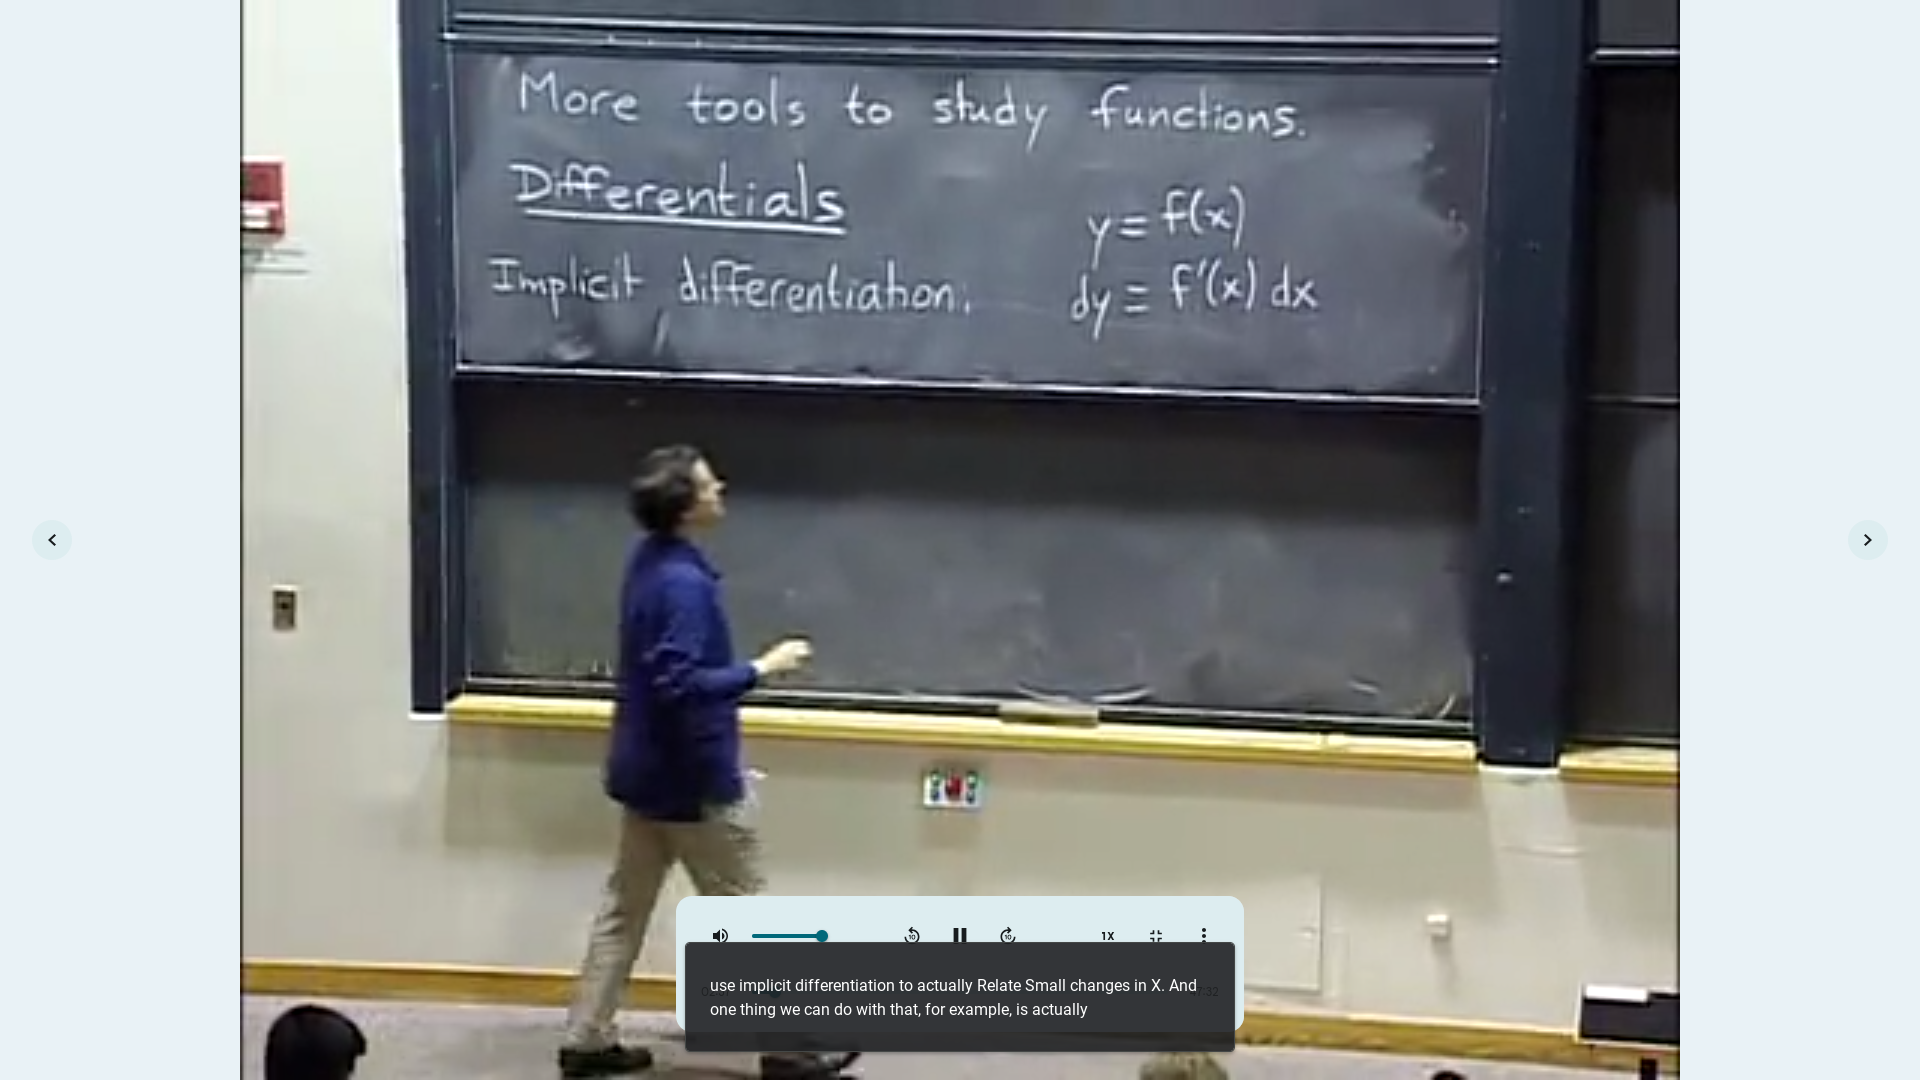 More tools to study functions.
Differentials
y = f(x)
Implicit differentiation.
dy = f'(x) dx
10
10
1X
use implicit differentiation to actually Relate Small changes in X. And
one thing we can do with that, for example, is actually